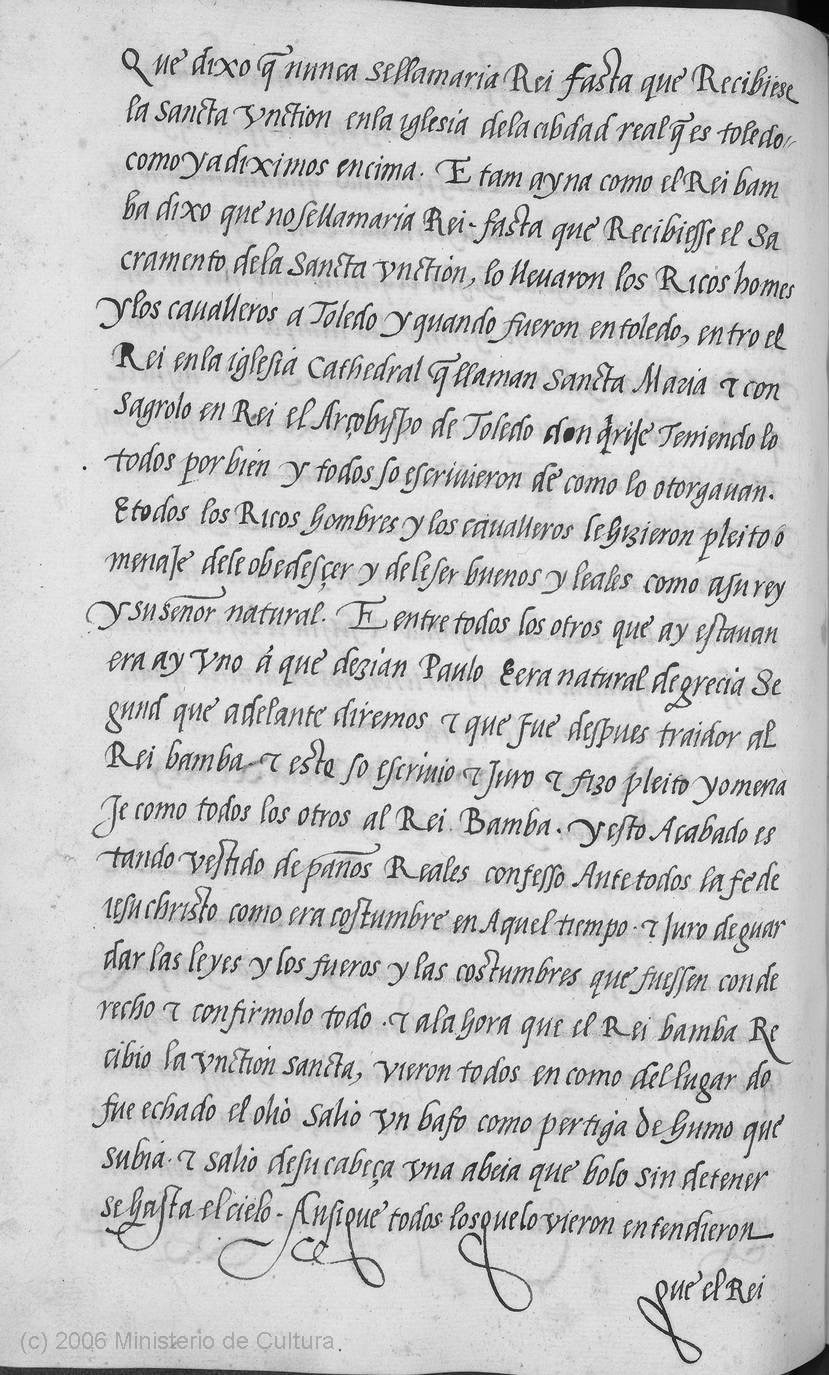 Que dixo q̃ nunca sellamaria Rei fasta que Recibiese
la sancta vnction enla iglesia dela cibdad real q̃ es toledo
como ya diximos encima. E tam ayna como el Rei bam
ba dixo que no sellamaria Rei. fasta que Recibiesse el Sa
cramento dela Sancta vnction, lo lleuaron los Ricos homes
y los caualleros a Toledo y quando fueron en toledo, entro el
Rei enla iglesia Cathedral q̃ llaman Sancta Maria ⁊ con
Sagrolo en Rei el Arçobispo de Toledo don Teniendo lo
todos por bien y todos so escriuieron de como lo otorgauan.
E todos los Ricos hombres y los caualleros le hizieron pleito o
menaje dele obedesçer y de leser buenos y leales como asu rey
y su señor natural. E entre todos los otros que ay estauan
era ay vno á que dezian Paulo E era natural de grecia Se
gund que adelante diremos ⁊ que fue despues traidor al
Rei bamba. ⁊ este so escriuio ⁊ Juro ⁊ fizo pleito y omena
Je como todos los otros al Rei Bamba. y esto Acabado es
tando vestido de paños Reales confesso Ante todos la fe de
iesuchristo como era costumbre en Aquel tiempo. ⁊ Juro de guar
dar las leyes y los fueros y las costumbres que fuessen con de
recho ⁊ confirmolo todo. ⁊ ala hora que el Rei bamba Re
cibio la vnction sancta, vieron todos en como del lugar do
fue echado el olio salio vn bafo como pertiga de humo que
subia. ⁊ salio desu cabeça vna abeia que bolo sin detener
se hasta el cielo. Ansi que todos los que lo vieron entendieron
que el Rei
(c) 2006 Ministerio de Cultura